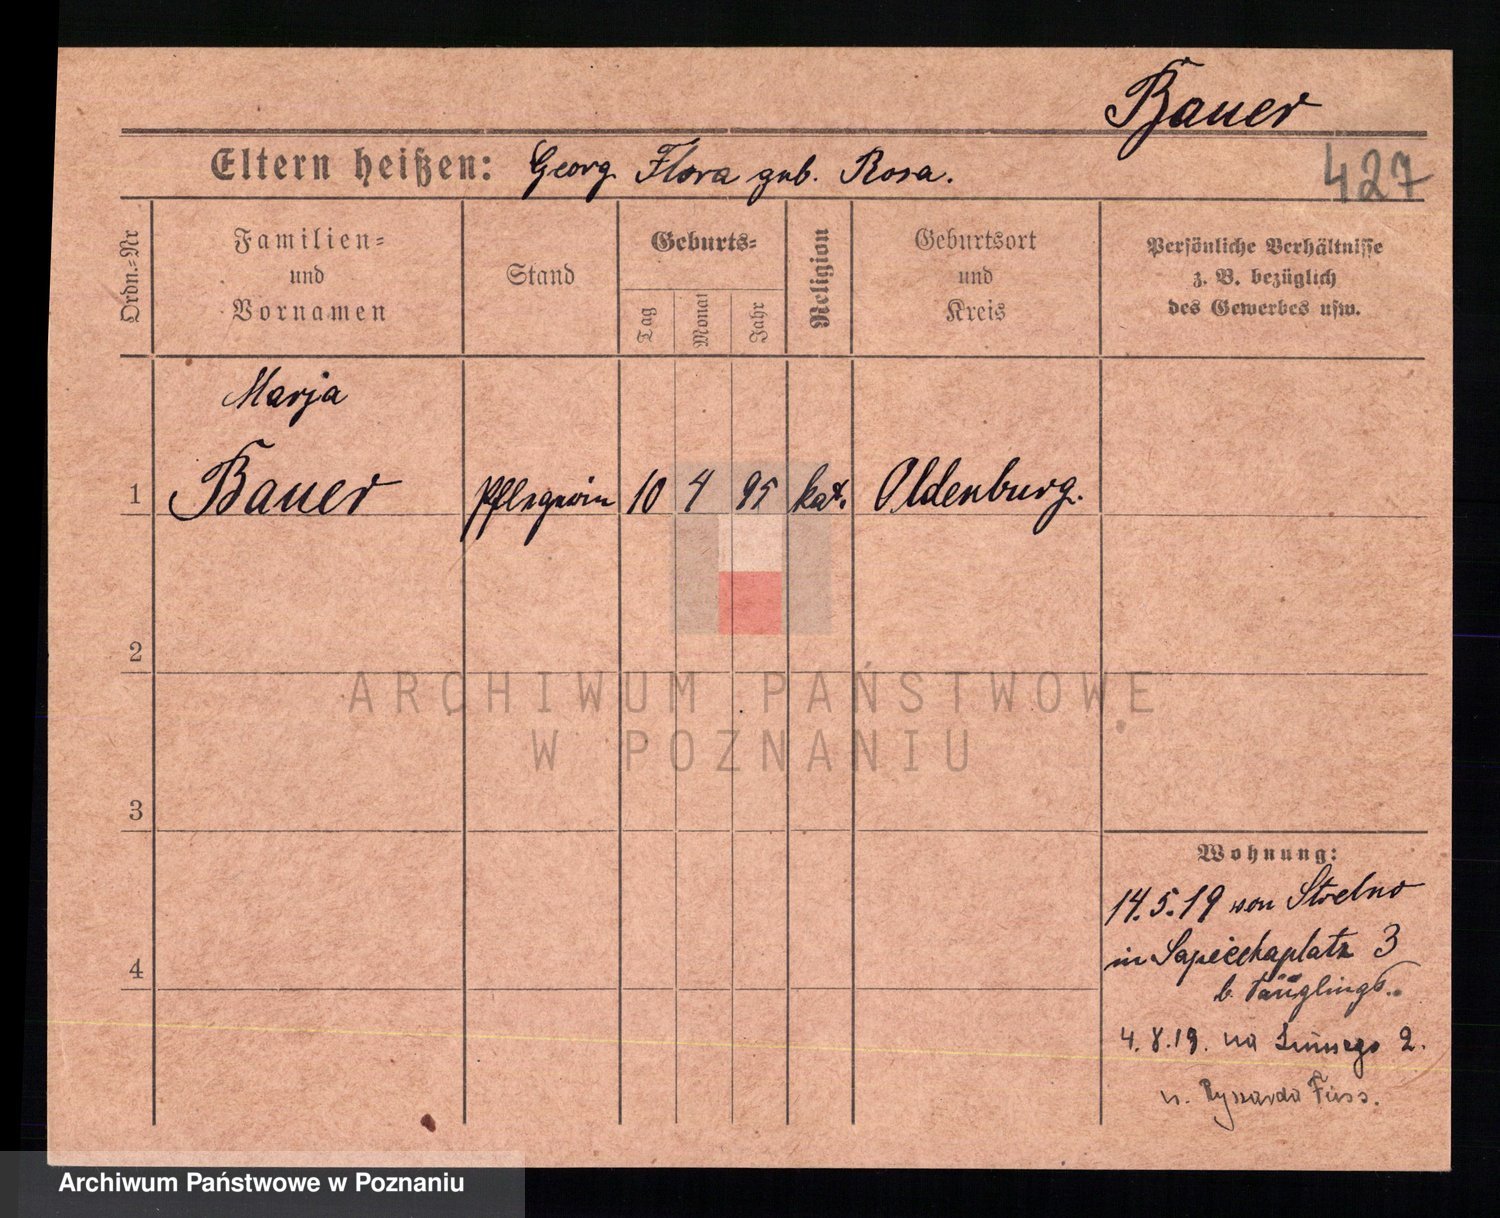 Bauer
Eltern heißen: Georg Flora geb. Rosa.
427
Ordn.=Nr
Familien=
und
Vornamen
Stand
Geburts=
Tag
Monat
Jahr
Religion
Geburtsort
und
Kreis
Persönliche Verhältnisse
z. B. bezüglich
des Gewerbes usw.
Marja
1 Bauer Pflegerin 10 4 95 kat. Oldenburg.
2
ARCHIWUM PAŃSTWOWE
W POZNANIU
3
Wohnung:
14.5.19 von Strelno
in Sapiehaplatz 3
b. Säuglings..
4
4.8.19. na 2.
u. Ryszarda Fuss.
Archiwum Państwowe w Poznaniu